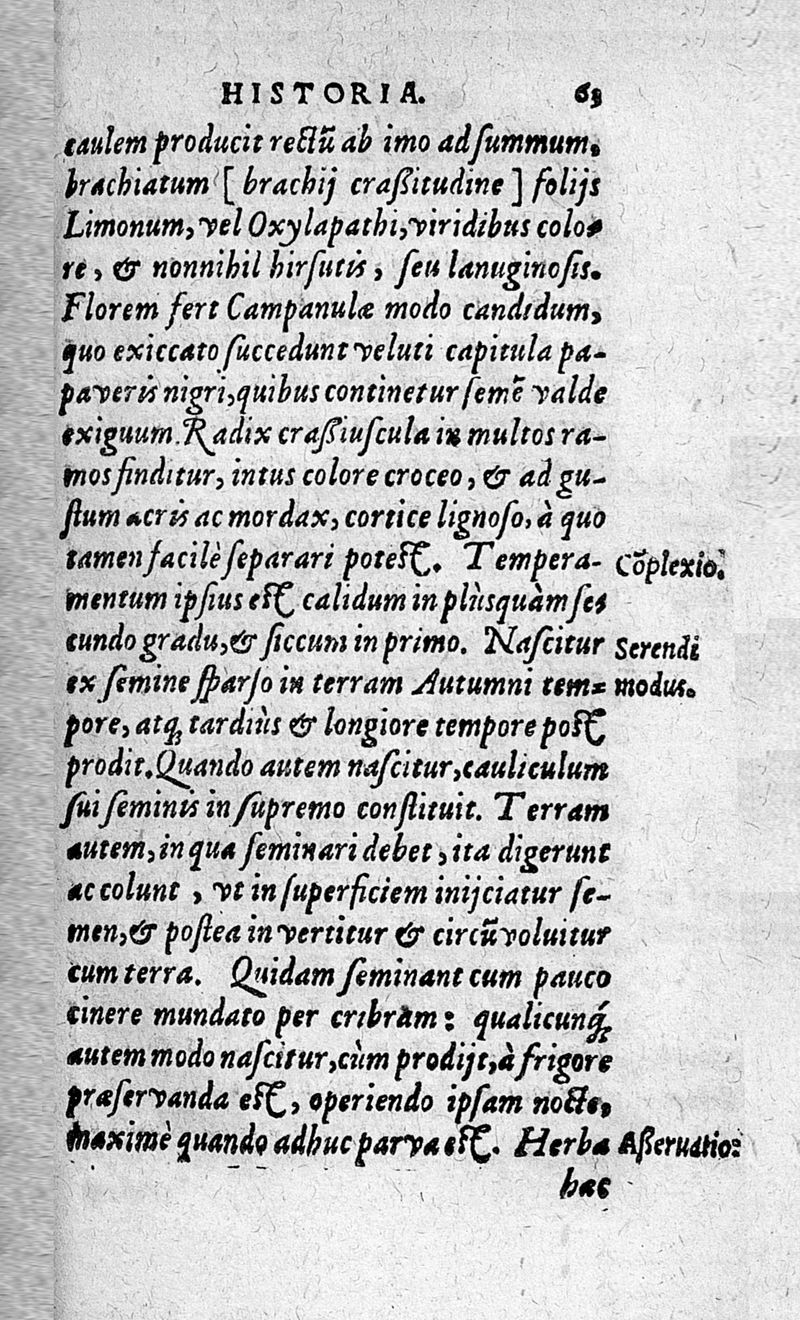 HISTORIA. 63
caulem producit rectũ ab imo ad ſummum,
brachiatum [ brachij craßitudine ] folijs
Limonum, vel Oxylapathi, viridibus colo-
re, & nonnihil hirſutis, ſeu lanuginoſis.
Florem fert Campanulæ modo candidum,
quo exiccato ſuccedunt veluti capitula pa-
paveris nigri, quibus continetur ſemẽ valde
exiguum. Radix craßiuſcula in multos ra-
mos finditur, intus colore croceo, & ad gu-
ſtum acris ac mordax, cortice lignoſo, à quo
tamen facilè ſeparari poteſt. Tempera- Cõplexio.
mentum ipſius eſt calidum in plùsquàm ſe-
cundo gradu, & ſiccum in primo. Naſcitur Serendi
ex ſemine ſparſo in terram Autumni tem- modus.
pore, atq; tardiùs & longiore tempore poſt
prodit. Quando autem naſcitur, cauliculum
ſui ſeminis in ſupremo conſtituit. Terram
autem, in qua ſeminari debet, ita digerunt
ac colunt, vt in ſuperficiem inijciatur ſe-
men, & poſtea invertitur & circũvoluitur
cum terra. Quidam ſeminant cum pauco
cinere mundato per cribram: qualicunq;
autem modo naſcitur, cùm prodijt, à frigore
præſervanda eſt, operiendo ipſam nocte,
maximè quando adhuc parva eſt. Herba Aßeruatio:
hæc